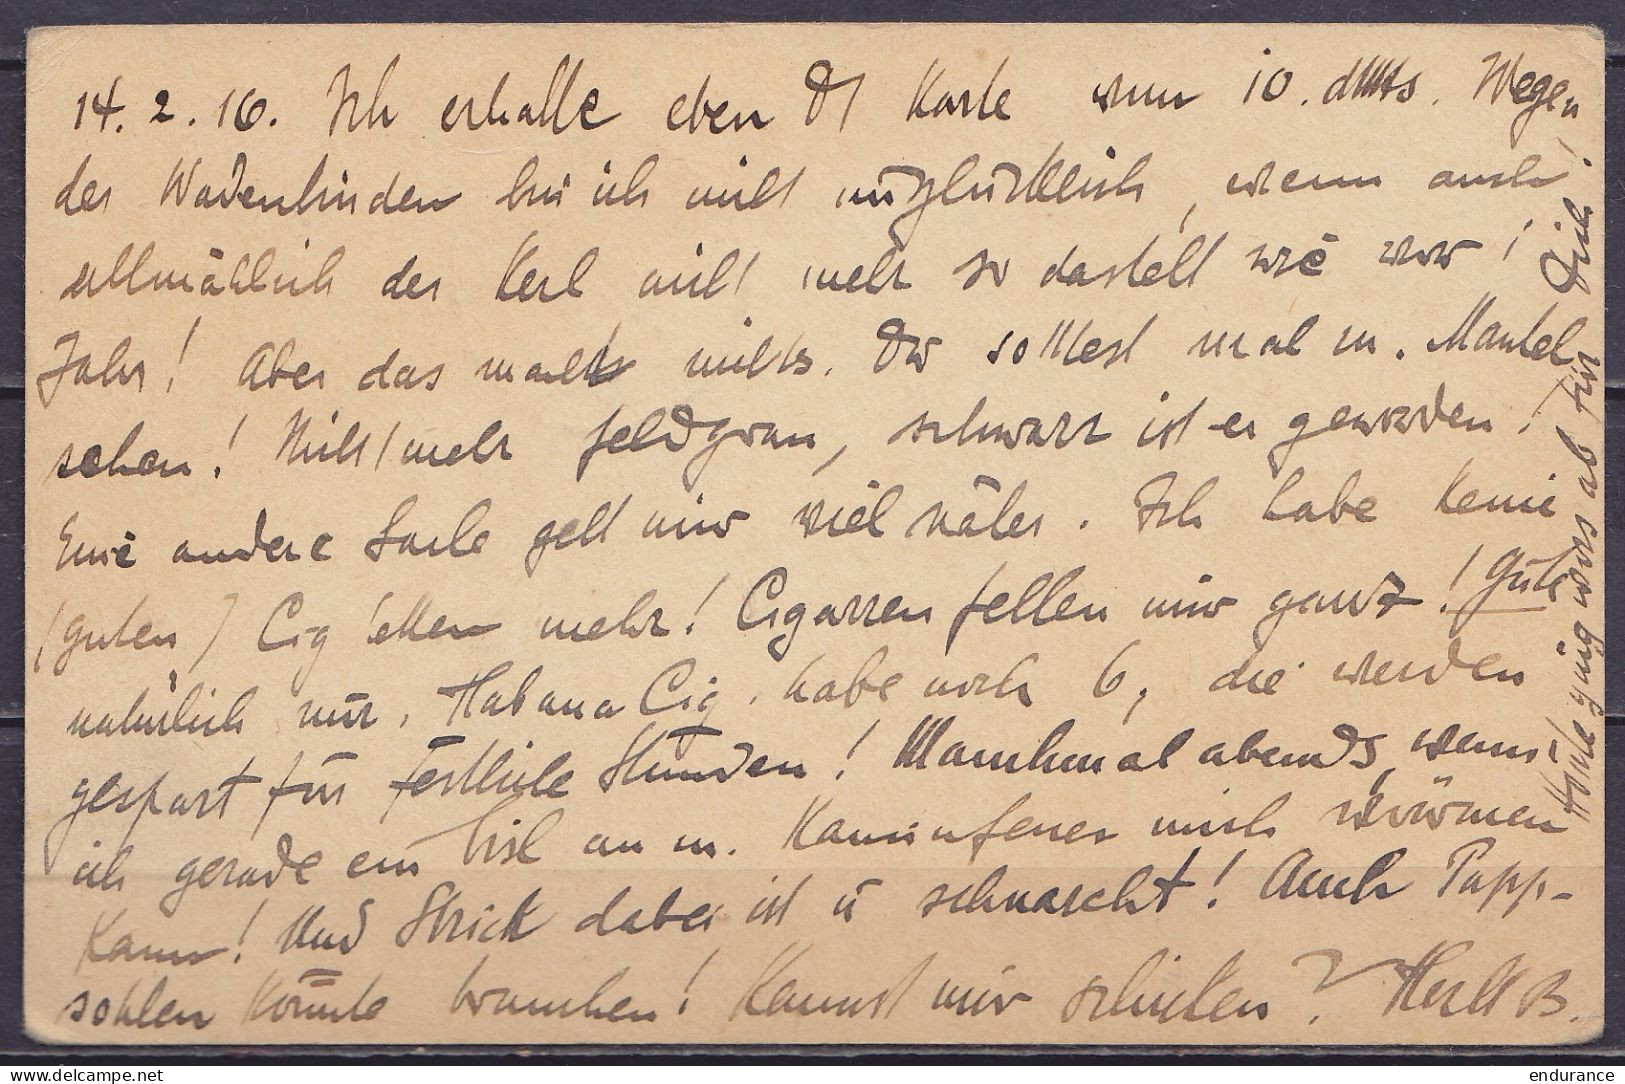 14. 2. 16. Ich erhalte eben D/ Karte vom 10. dMts. Wegen
der Wadenbinden bin ich nicht unglücklich, wenn auch
allmählich der Kerl nicht mehr so dasteht wie vor 1
Jahr! Aber das macht nichts. Du solltest mal m. Mantel
sehen! Nicht mehr feldgrau, schwarz ist er geworden!
Eine andere Sache geht mir viel näher. Ich habe keine
(guten) Cig'etten mehr! Cigarren fehlen mir ganz! Gute
natürlich nur. Habana Cig. habe noch 6, die werden
gespart für festliche Stunden! Manchmal abends, wenn
ich gerade ein bisl an m. Kaminfeuer mich wärmen
kann! Und Strick dabei ist u schnarcht! Auch Papp-
sohlen könnte brauchen! Kannst mir schicken? Herzl B.
Heute ging was ab für Dich!
endurance